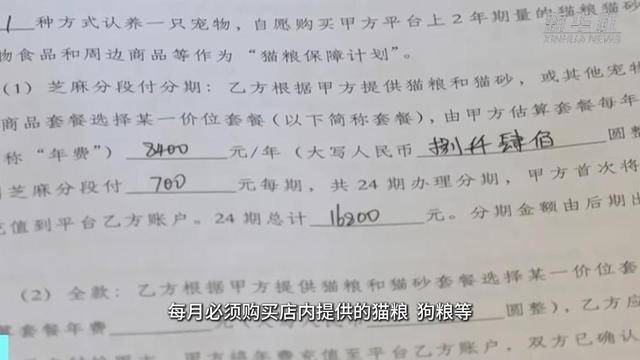 新华社
XINHUA NEWS
1 种方式认养一只宠物，自愿购买甲方平台上2年期量的猫粮猫砂
物食品和周边商品等作为“猫粮保障计划”。
（1）芝麻分段付分期：乙方根据甲方提供猫粮和猫砂，或其他宠物
商品套餐选择某一价位套餐（以下简称套餐），由甲方估算套餐每年
称“年费”）8400元/年（大写人民币 捌仟肆佰 圆整
芝麻分段付 700 元每期，共24期办理分期，甲方首次将
充值到平台乙方账户。24期总计 16800 元。分期金额由后期出
（2）全款：乙方根据甲方提供猫粮和猫砂套餐选择某一价位套
套餐年费 圆整），乙方应
每月必须购买店内提供的猫粮 狗粮等
甲方将年费充值至平台乙方账户，双方已确认